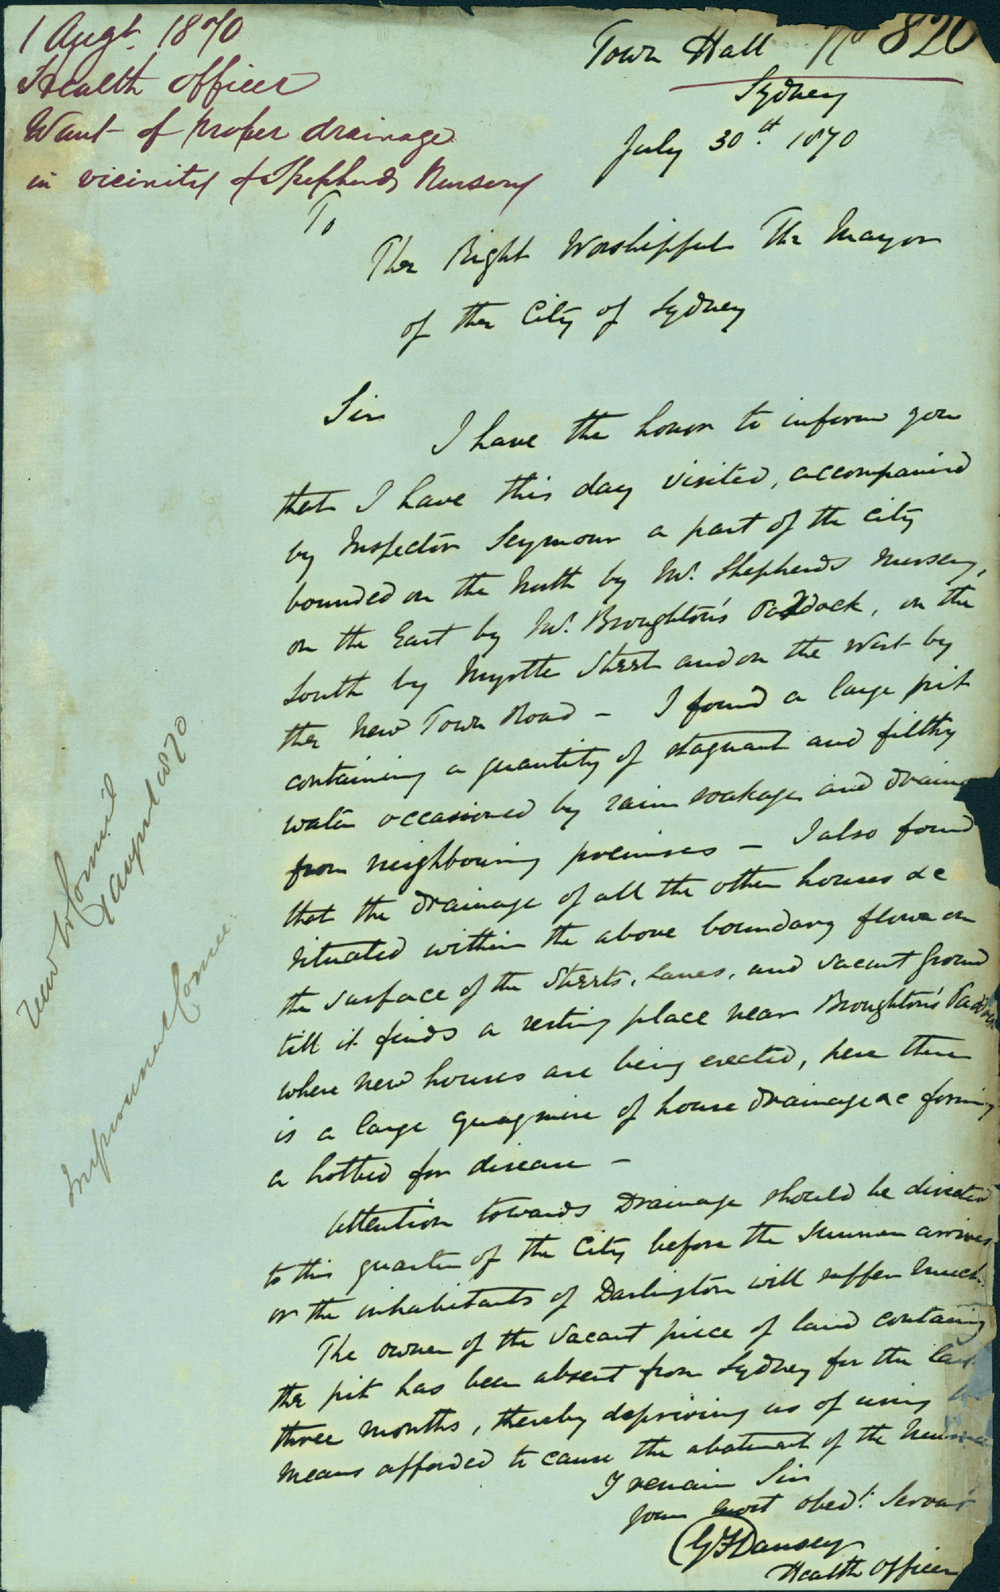 1 Augt. 1870
Health Officer
Want of proper drainage
in vicinity of Shepherds Nursery
Town Hall No 820
Sydney
July 30th. 1870
To
The Right Worshipful The Mayor
of the City of Sydney
Sir
I have the honor to inform you
that I have this day visited, accompanied
by Inspector Seymour a part of the City
bounded on the North by Mr. Shepherds Nursery,
on the East by Mr. Broughton's Paddock, on the
South by Myrtle Street and on the West by
the New Town Road – I found a large pit
containing a quantity of stagnant and filthy
water occasioned by rain soakage and drainage
from neighbouring premises – I also found
that the drainage of all the other houses &c
situated within the above boundary flows on
the surface of the Streets, lanes, and vacant ground
till it finds a resting place near Broughton's Paddock
where new houses are being erected, here there
is a large quagmire of house drainage &c forming
a hotbed for disease –
Attention towards Drainage should be directed
to this quarter of the City before the Summer arrives
or the inhabitants of Darlington will suffer much.
The owner of the vacant piece of land containing
the pit has been absent from Sydney for the last
three months, thereby depriving us of using
means afforded to cause the abatement of the Nuisance
I remain Sir
Your most obedt. Servant
G F Dansey
Health Officer
1870
Improvement Comee